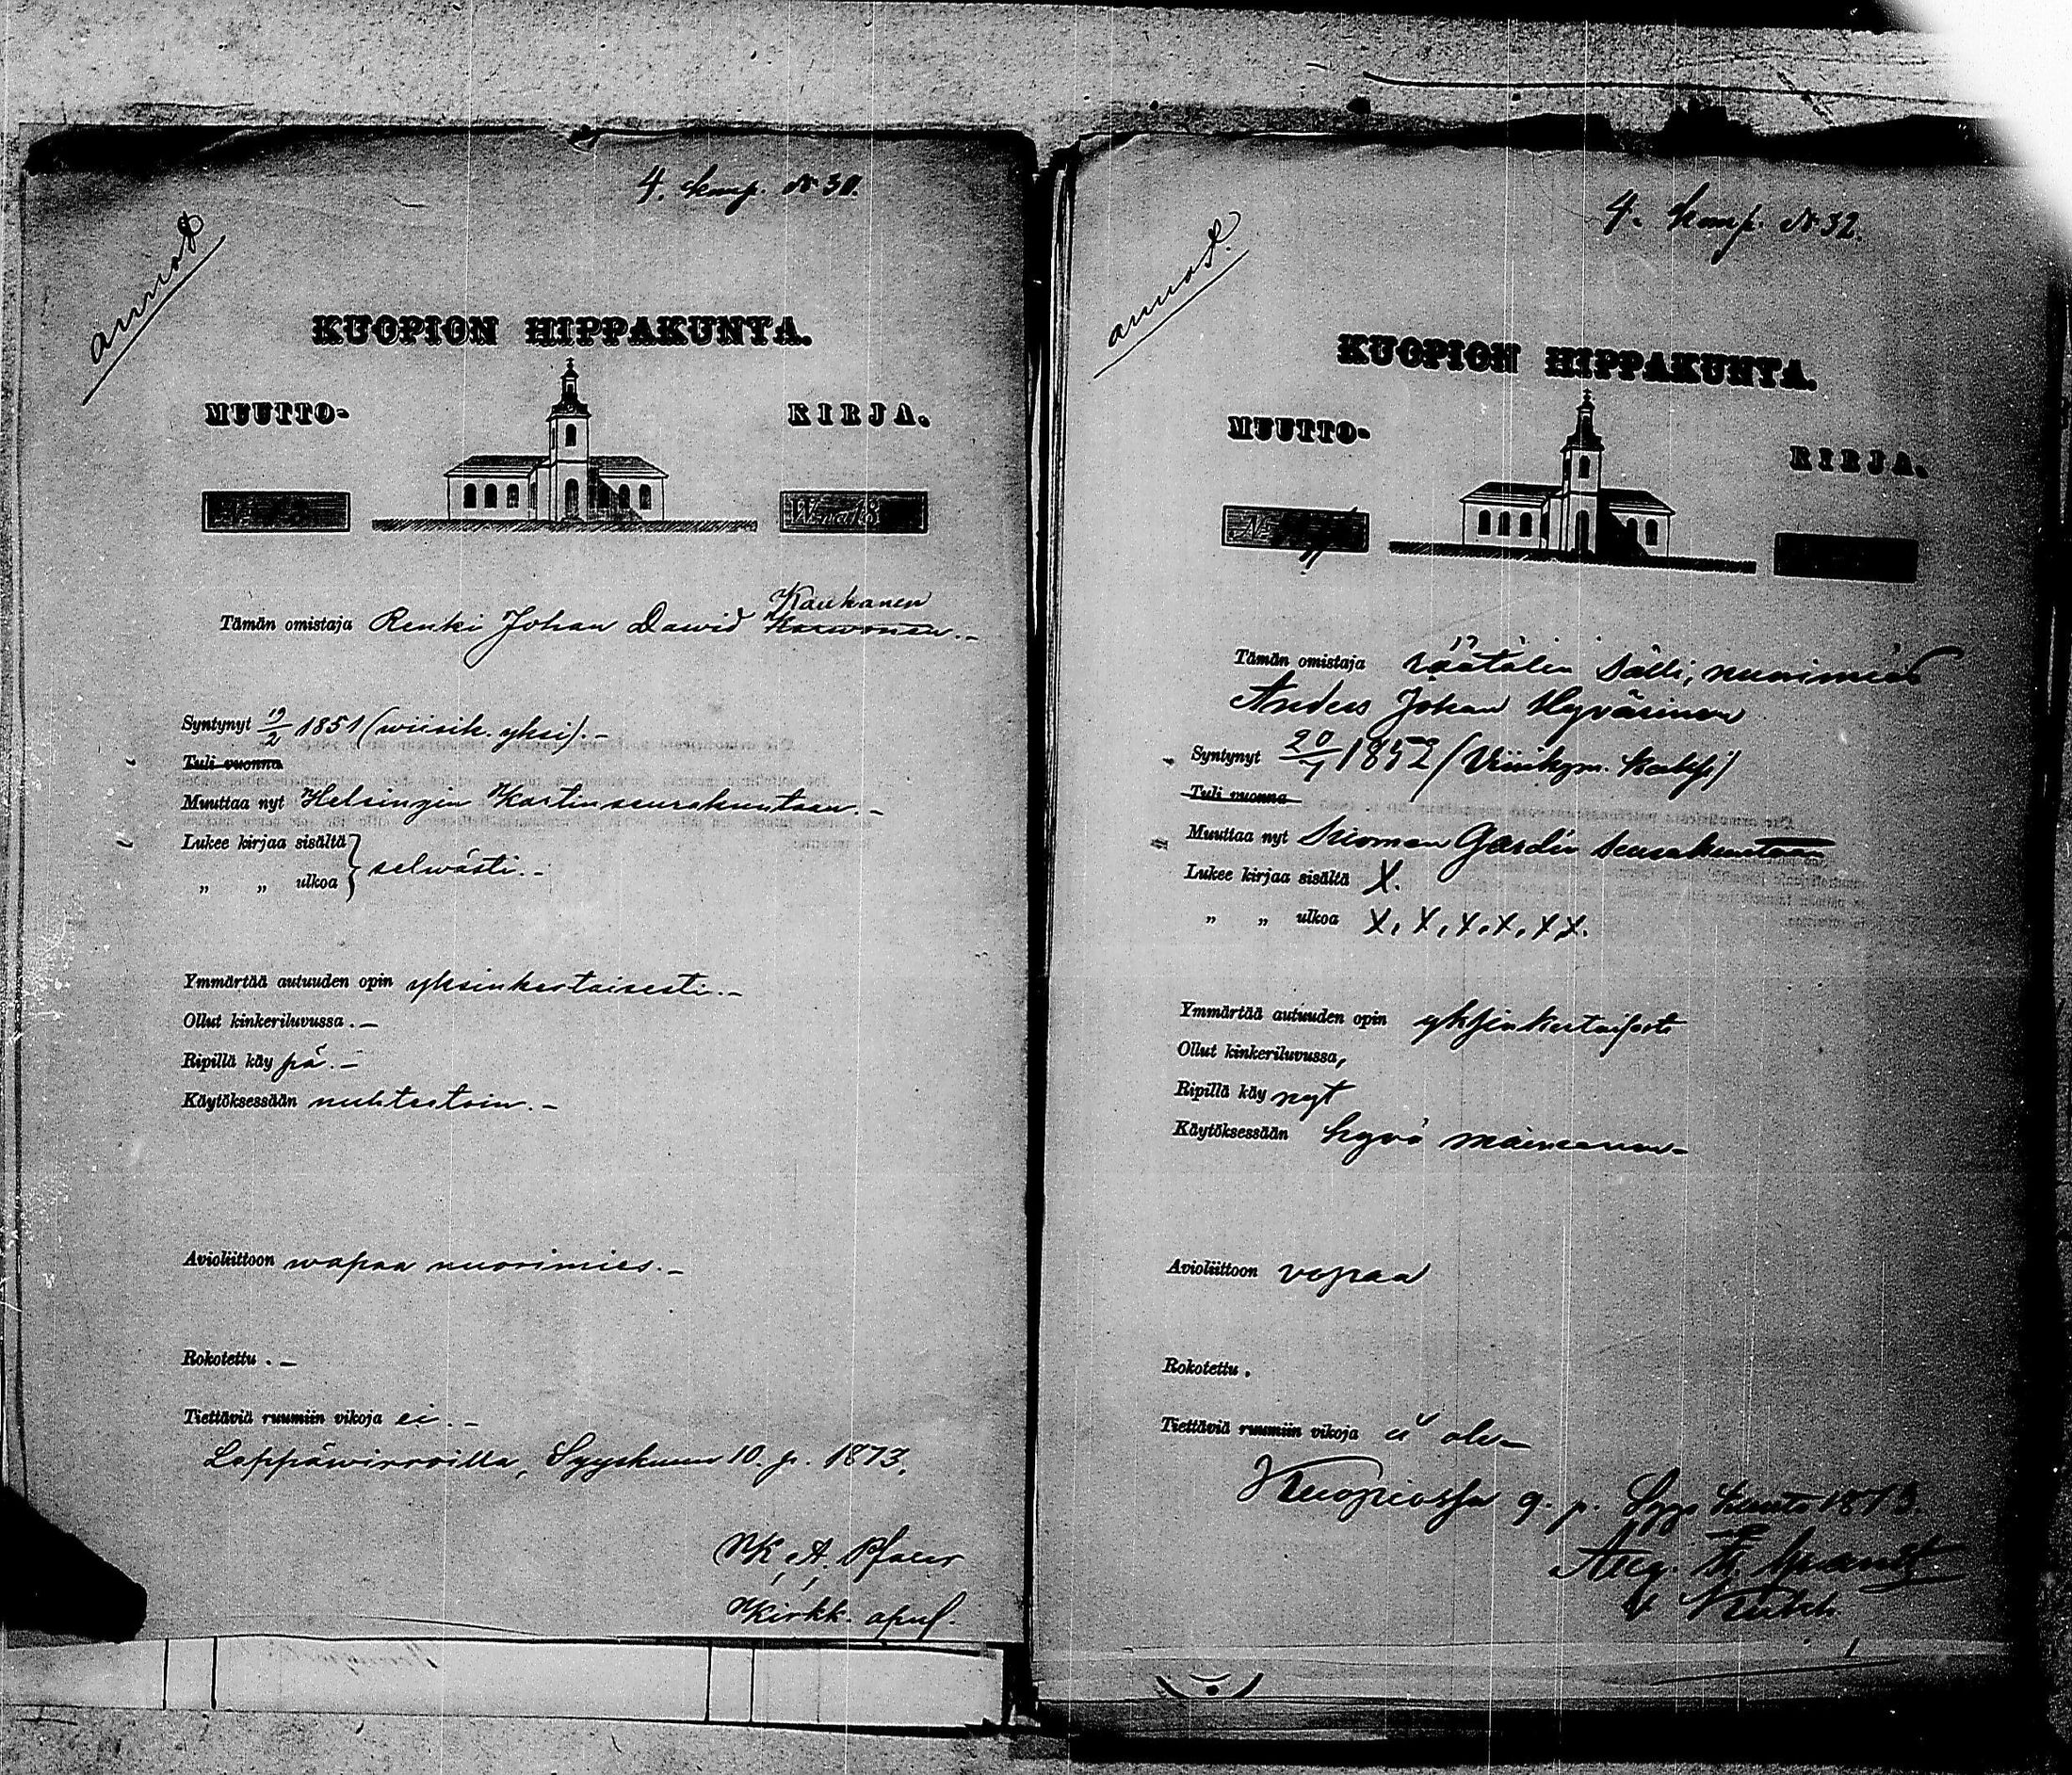 4. komp. № 30.
annot
KUOPION HIPPAKUNTA.
MUUTTO- KIRJA.
W:na 18
Kaukanen
Tämän omistaja Renki Johan Dawid
Syntynyt 19/2 1851 (wiisik. yksi). –
Tuli vuonna
Muuttaa nyt Helsingin Kaartinseurakuntaan. –
Lukee kirjaa sisältä
„ „ ulkoa } selwästi. –
Ymmärtää autuuden opin yksinkertaisesti. –
Ollut kinkeriluvussa. –
Ripillä käy pä. –
Käytöksessään nuhteetoin. –
Avioliittoon wapaa nuorimies. –
Rokotettu. –
Tiettäviä ruumiin vikoja ei. –
Leppäwirroilla, Syyskuun 10. p. 1873.
A. Pfaler
Kirkk. apul.
4. komp. № 32.
annot.
KUOPION HIPPAKUNTA.
MUUTTO- KIRJA.
N:o
Tämän omistaja räätälin sälli, nuorimies
Anders Johan Hyvärinen
Syntynyt 20/1 1852 (Viisikym. kaksi)
Tuli vuonna
Muuttaa nyt Suomen Gardin seurakuntaan
Lukee kirjaa sisältä X.
„ „ ulkoa X, X, X, X, X, X.
Ymmärtää autuuden opin yksinkertaisesti
Ollut kinkeriluvussa,
Ripillä käy nyt
Käytöksessään hyvä maineinen –
Avioliittoon vapaa
Rokotettu.
Tiettäviä ruumiin vikoja ei ole –
Kuopiossa 9. p. Syys kuuta 1873.
Aug.